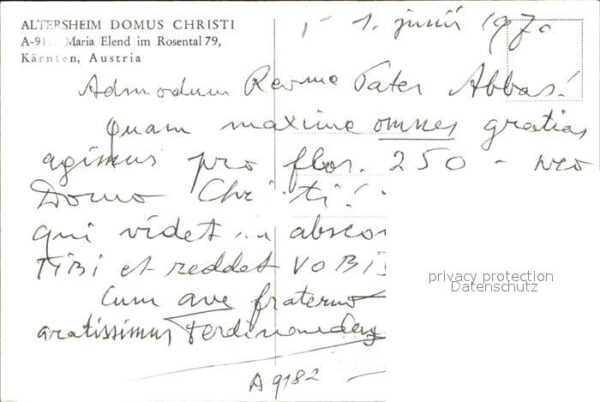 ALTERSHEIM DOMUS CHRISTI
A-91 Maria Elend im Rosental 79,
Kärnten, Austria
1. junii 1970
Admodum Revme Pater Abbas!
Quam maxime omnes gratias
agimus pro flor. 250 -
Domo Christi!
qui videt in absco
TIBI et reddet VOBIS
Cum ave fraterno
gratissimus
A 9182
privacy protection
Datenschutz